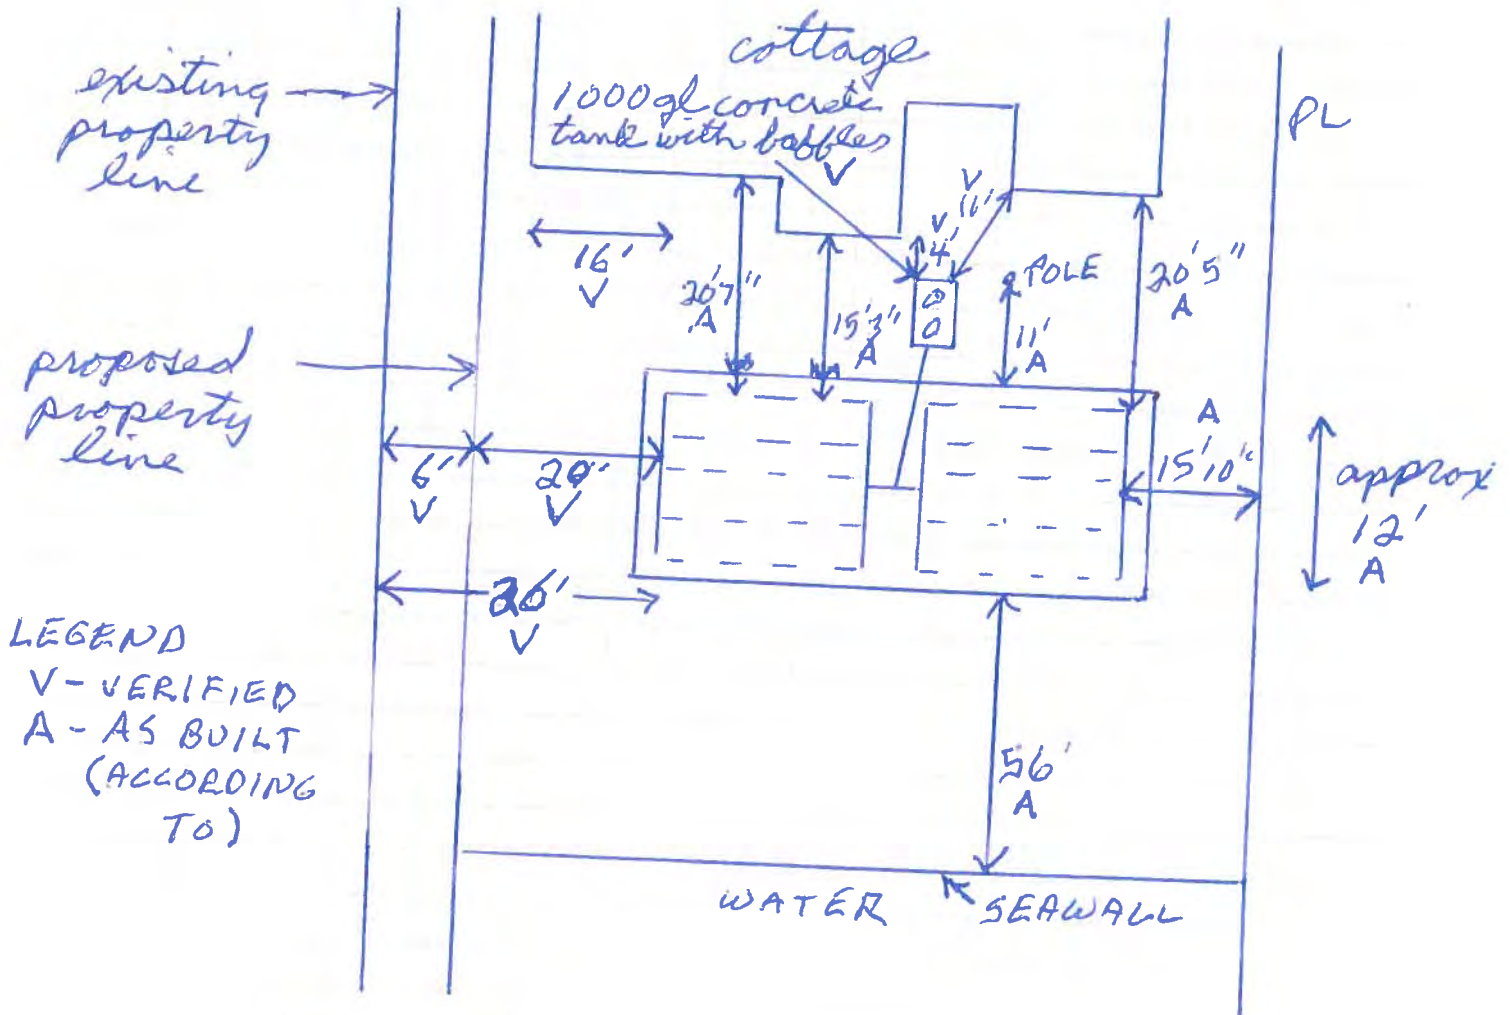 cottage
existing
property
line
1000gl concrete
tank with baffles
V
PL
V
11'
V
4'
16'
V
20'7"
A
15'3"
A
POLE
11'
A
20'5"
A
proposed
property
line
6'
V
20'
V
A
15'10"
approx
12'
A
26'
V
LEGEND
V - VERIFIED
A - AS BUILT
(ACCORDING
TO)
56'
A
WATER
SEAWALL